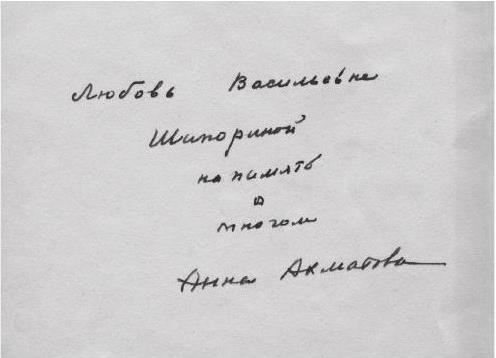 Любовь Васильевне
Шапориной
на память
о
многом
Анна Ахматова